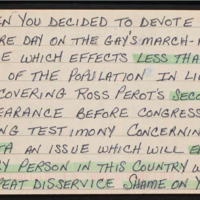 N YOU DECIDED TO DEVOTE
RE DAY ON THE GAY'S MARCH-
E WHICH EFFECTS LESS THA
OF THE POPULATION IN LI
COVERING ROSS PEROT'S SECO
EARANCE BEFORE CONGRESS
NG TESTIMONY CONCERNIN
TA AN ISSUE WHICH WILL E
Y PERSON IN THIS COUNTRY W
REAT DISSERVICE SHAME ON Y